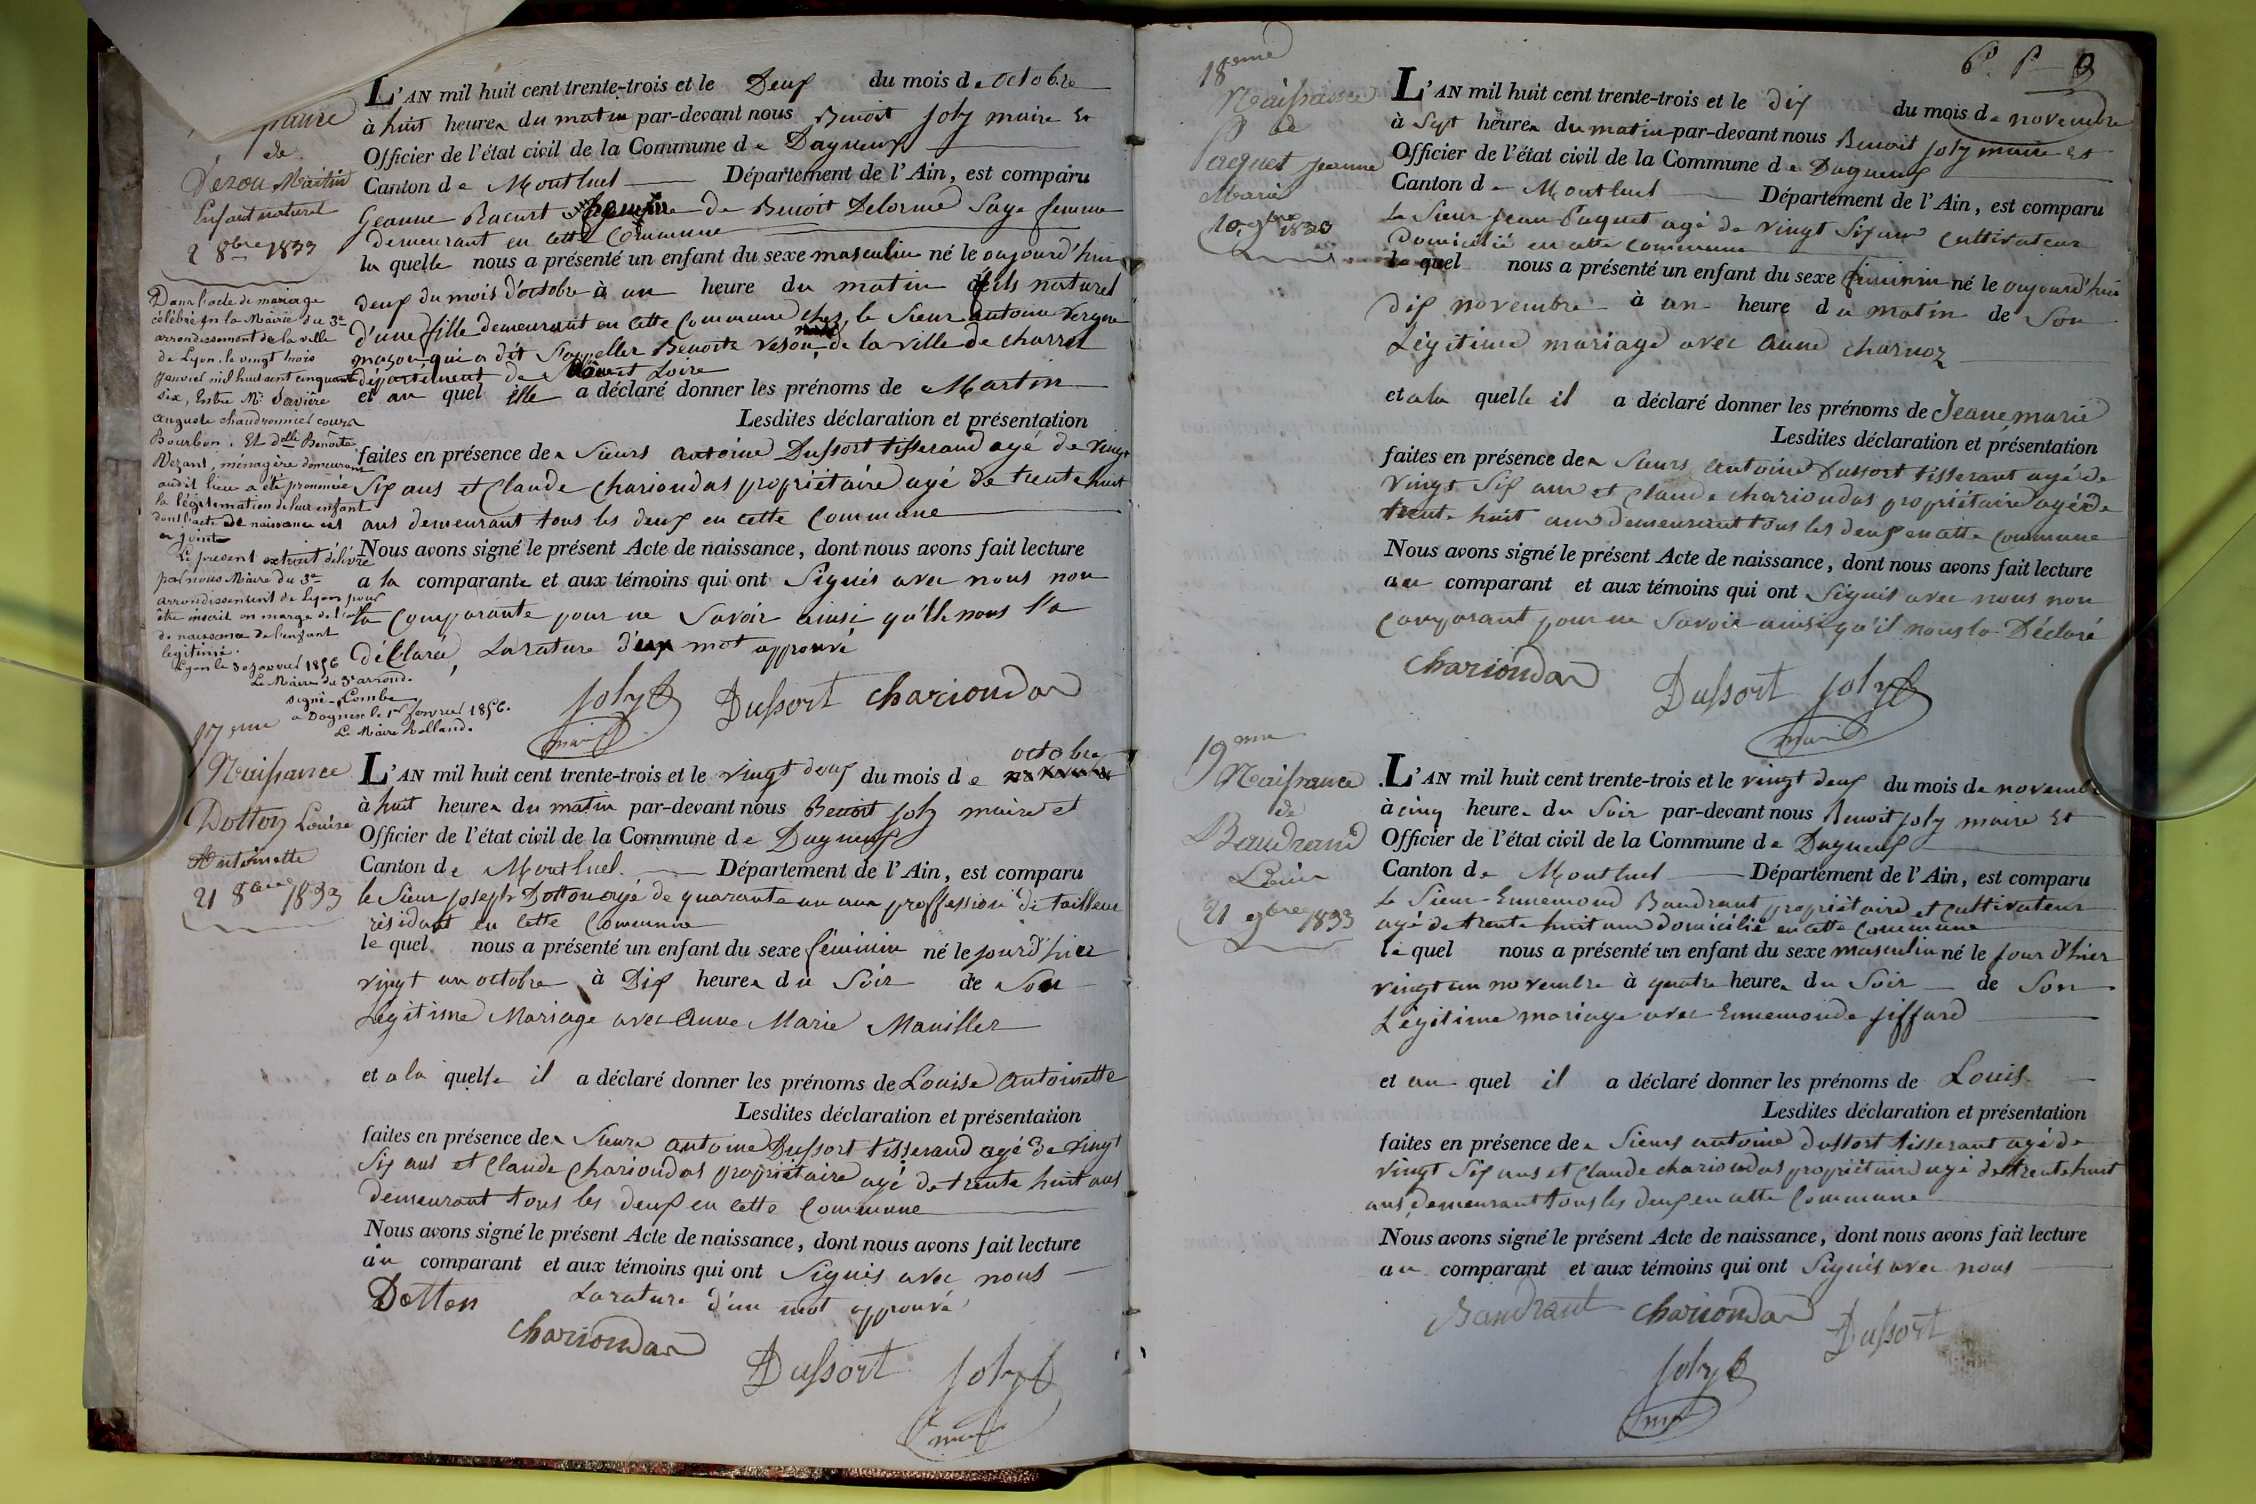 de
Vezou Martin
Enfant naturel
2 8bre 1833
Dans l'acte de mariage
célébré en la Mairie du 3e
arrondissement de la ville
de Lyon, le vingt trois
janvier mil huit cent cinquante
six, Entre Mr Savière
auguste chaudronnier cours
Bourbon. Et dlle Benoîte
Vezant, ménagère demeurant
audit lieu a été prononcée
la légitimation de leur enfant
dont l'acte de naissance est
ci joint
Le present extrait délivré
par nous Maire du 3e
arrondissement de Lyon pour
être inscrit en marge de l'acte
de naissance de l'enfant
legitimé.
Lyon le 30 janvier 1856
Le Maire du 3e arrond.
signé - Lombe
a Dagneux le 1er fevrier 1856.
Le Maire Rolland.
L'AN mil huit cent trente-trois et le Deux du mois de octobre
à huit heures du matin par-devant nous Benoit Joly maire et
Officier de l'état civil de la Commune de Dagneux
Canton de Montluel Département de l'Ain, est comparu
Jeanne Racurt de Benoit Delorme Sage femme
demeurant en cette Commune
la quelle nous a présenté un enfant du sexe masculin né le aujourd'hui
deux du mois d'octobre à un heure du matin fils naturel
d'une fille demeurant en cette Commune chez le Sieur antoine Vergne
maçon qui a dit S'appeller Benoite Vesou, de la ville de charrol
département de Saone et Loire
et au quel elle a déclaré donner les prénoms de Martin
Lesdites déclaration et présentation
faites en présence des Sieurs antoine Dussort tisserand agé de vingt
Six ans et Claude Chariondas propriétaire agé de trente huit
ans demeurant tous les deux en cette Commune
Nous avons signé le présent Acte de naissance, dont nous avons fait lecture
a la comparante et aux témoins qui ont Signés avec nous non
la Comparante pour ne Savoir ainsi qu'elle nous l'a
déClaré, La rature d'un mot approuvé
Joly
maire
Dussort
chariondas
17eme
Naissance
Dotton Louise
Antoinette
21 8bre 1833
L'AN mil huit cent trente-trois et le vingt deux du mois de octobre
à huit heures du matin par-devant nous Benoit Joly maire et
Officier de l'état civil de la Commune de Dagneux
Canton de Montluel. Département de l'Ain, est comparu
le Sieur Joseph Dotton agé de quarante un ans proffession de tailleur
résidant en cette Commune
le quel nous a présenté un enfant du sexe féminin né le jourd'hier
vingt un octobre à Dix heures du Soir de Son
Légitime Mariage avec Anne Marie Maniller
et a la quelle il a déclaré donner les prénoms de Louise Antoinette
Lesdites déclaration et présentation
faites en présence des Sieurs antoine Dussort tisserand agé de vingt
Six ans et Claude Chariondas propriétaire agé de trente huit ans
demeurant tous les deux en cette Commune
Nous avons signé le présent Acte de naissance, dont nous avons fait lecture
au comparant et aux témoins qui ont Signés avec nous
Dotton La rature d'un mot approuvé
chariondas
Dussort
Joly
maire
18eme
Naissance
de
Paquet Jeanne
Marie
10 9bre 1833
L'AN mil huit cent trente-trois et le dix du mois de novembre
à Sept heures du matin par-devant nous Benoit Joly maire et
Officier de l'état civil de la Commune de Dagneux
Canton de Montluel Département de l'Ain, est comparu
le Sieur Jean Paquet agé de vingt Six ans Cultivateur
Domicilié en cette Commune
le quel nous a présenté un enfant du sexe féminin né le aujourd'hui
dix novembre à un heure du matin de Son
Légitime mariage avec Anne charvoz
et a la quelle il a déclaré donner les prénoms de Jeanne marie
Lesdites déclaration et présentation
faites en présence des Sieurs antoine Dussort tisserant agé de
vingt Six ans et Claude chariondas propriétaire agé de
trente huit ans demeurant tous les deux en cette Commune
Nous avons signé le présent Acte de naissance, dont nous avons fait lecture
au comparant et aux témoins qui ont Signés avec nous non
Comparant pour ne Savoir ainsi qu'il nous la Déclaré
chariondas
Dussort Joly
maire
19eme
Naissance
de
Baudrand
Louis
21 9bre 1833
L'AN mil huit cent trente-trois et le vingt deux du mois de novembre
à cinq heures du Soir par-devant nous Benoit Joly maire et
Officier de l'état civil de la Commune de Dagneux
Canton de Montluel Département de l'Ain, est comparu
le Sieur Ennemond Baudrant propriétaire et Cultivateur
agé de trente huit ans domicilié en cette Commune
le quel nous a présenté un enfant du sexe masculin né le jour d'hier
vingt un novembre à quatre heures du Soir de Son
Légitime mariage avec Ennemonde Jiffard
et au quel il a déclaré donner les prénoms de Louis
Lesdites déclaration et présentation
faites en présence des Sieurs antoine dussort tisserant agé de
vingt Six ans et Claude chariondas propriétaire agé de trente huit
ans, demeurant tous les deux en cette Commune
Nous avons signé le présent Acte de naissance, dont nous avons fait lecture
au comparant et aux témoins qui ont Signés avec nous
Baudrant chariondas
Dussort
Joly
maire